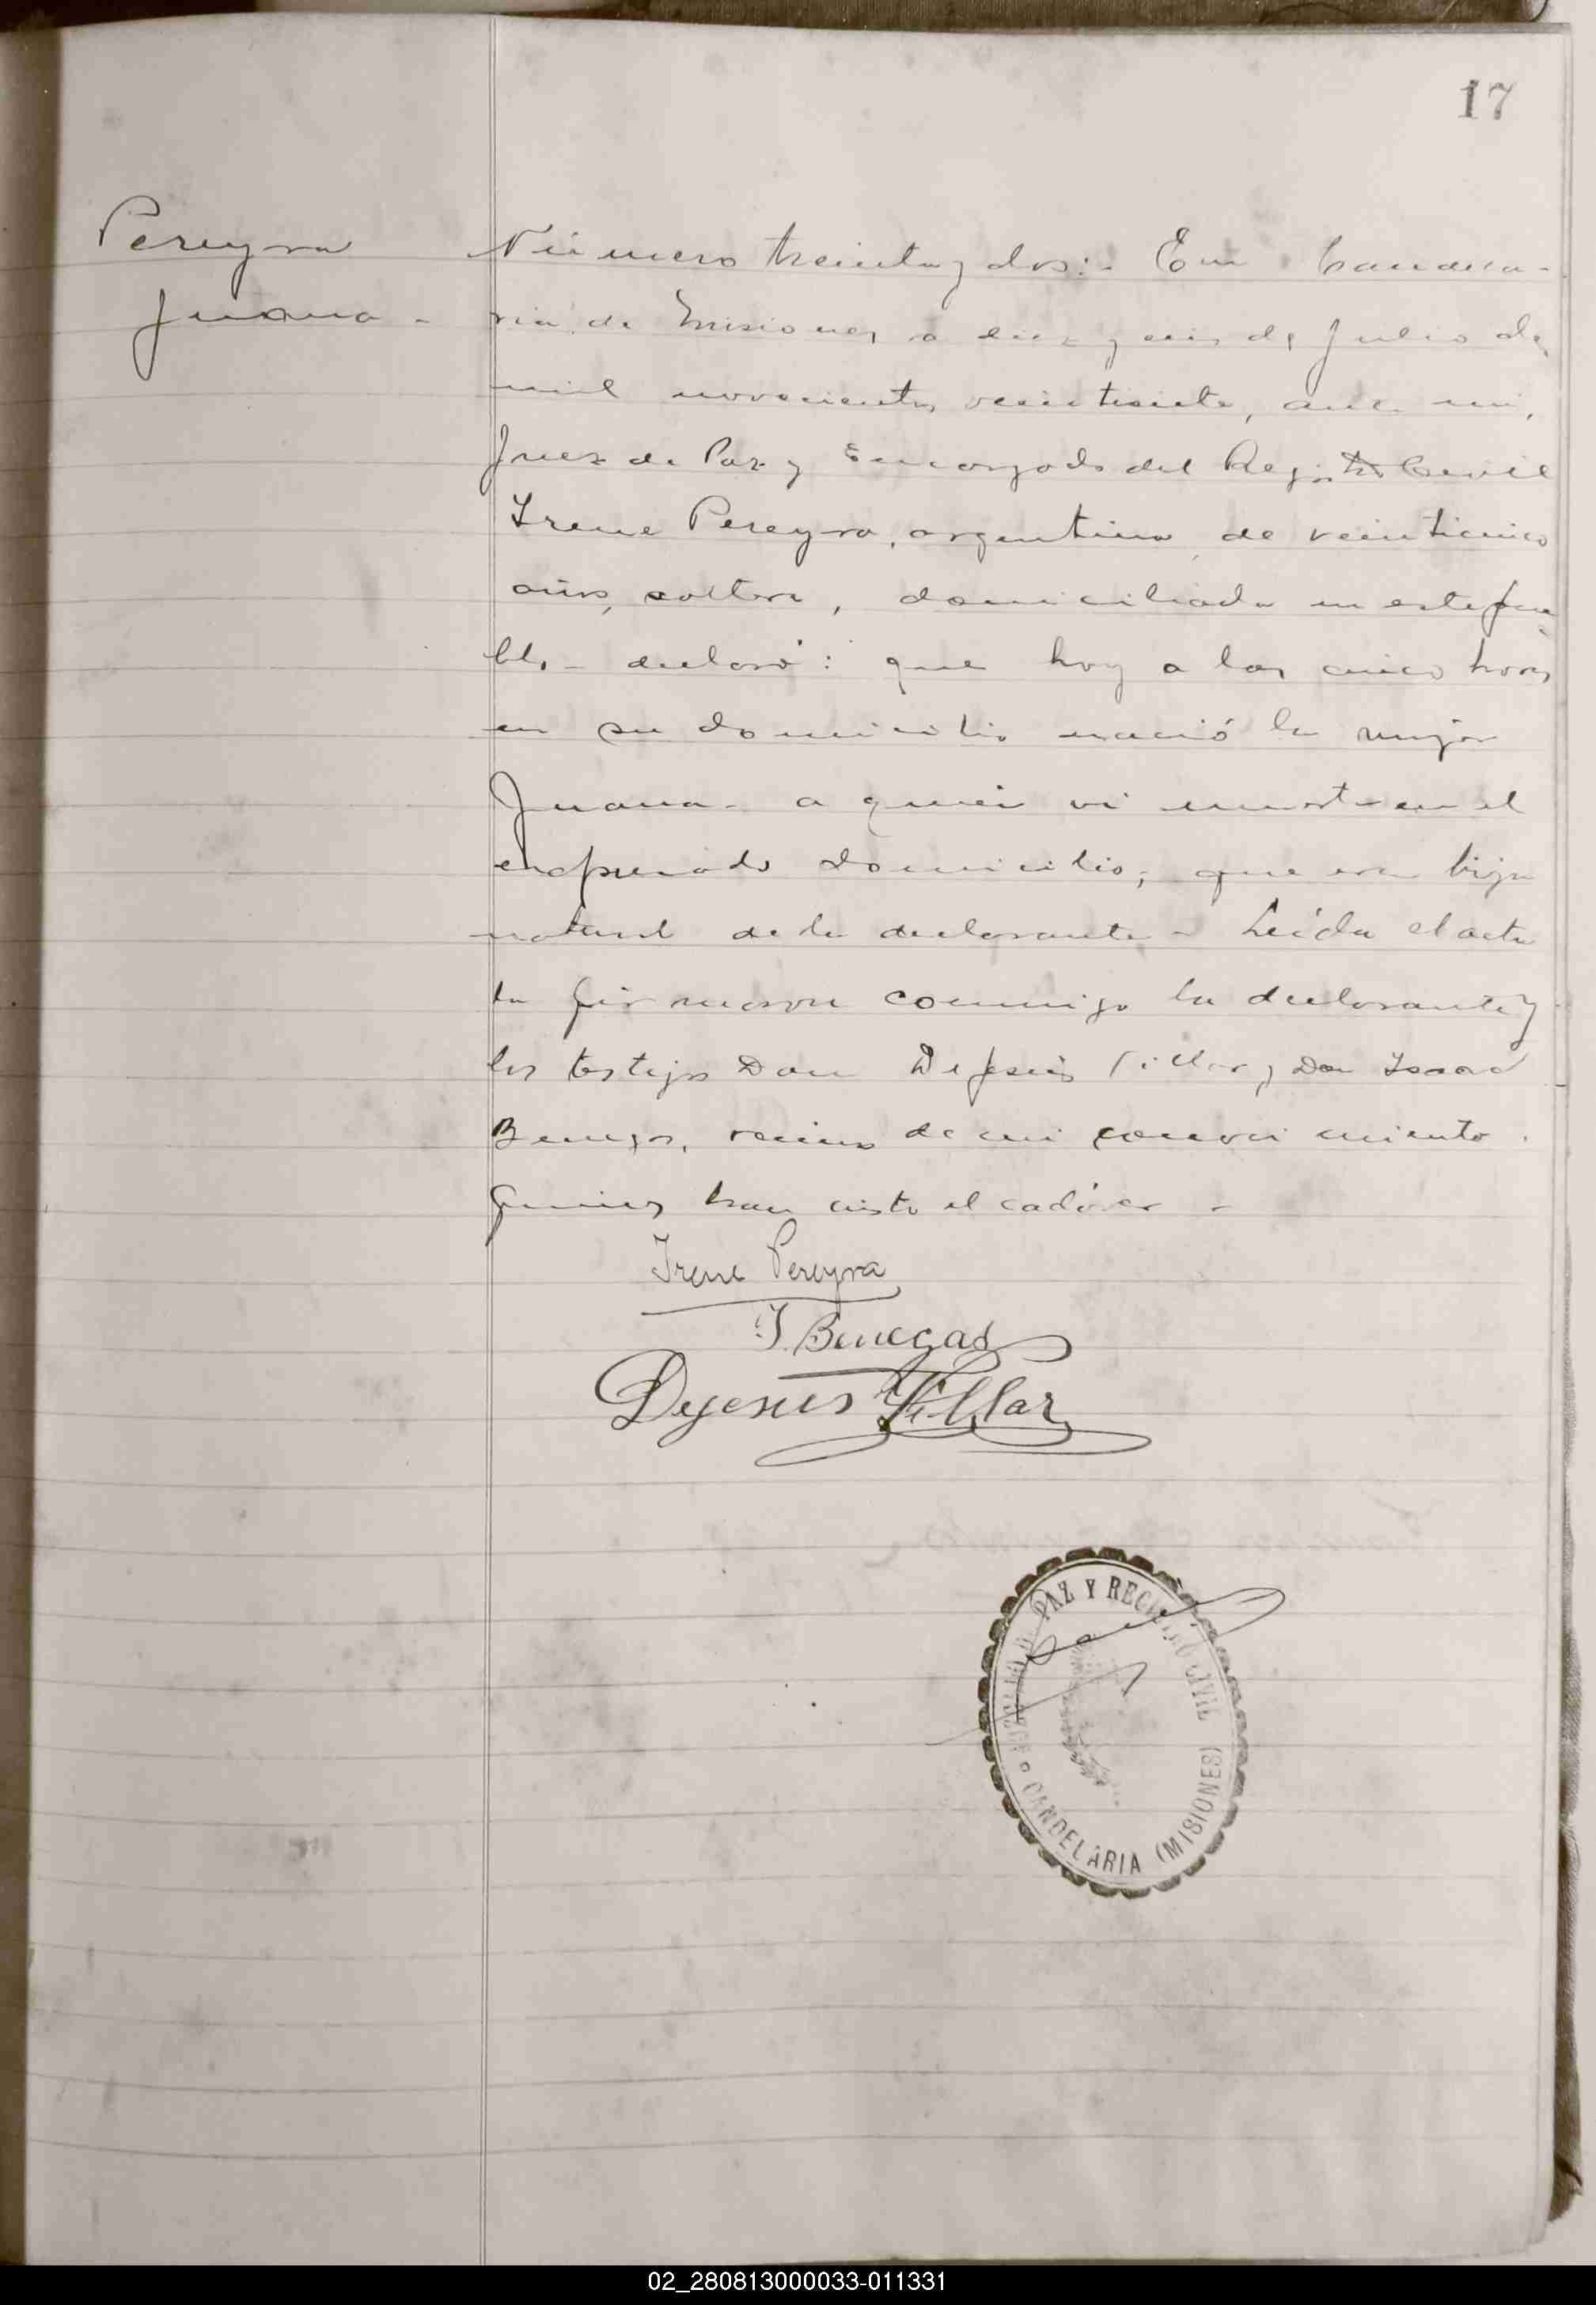 17
Pereyra
Juana -
Número treinta y dos:- En Candela-
ria de Misiones a diez y seis de Julio de
mil novecientos veintisiete, ante mi,
Juez de Paz y Encargado del Registro Civil
Irene Pereyra, argentina, de veinticinco
años, soltera, domiciliada en este pue
blo - declaró: que hoy a las cinco horas
en su domicilio nació la mujer
Juana - a quien vi muerta en el
expresado domicilio; que era hija
natural de la declarante - Leida el acta
la firmaron conmigo la declarante y
los testigos Don Dejesús Villar y Don Isaac
Benegas, vecinos de mi conocimiento
quienes han visto el cadáver -
Irene Pereyra
I. Benegas
Dejesus Villar
JUZGADO DE PAZ Y REGISTRO CIVIL
CANDELARIA (MISIONES)
02_280813000033-011331